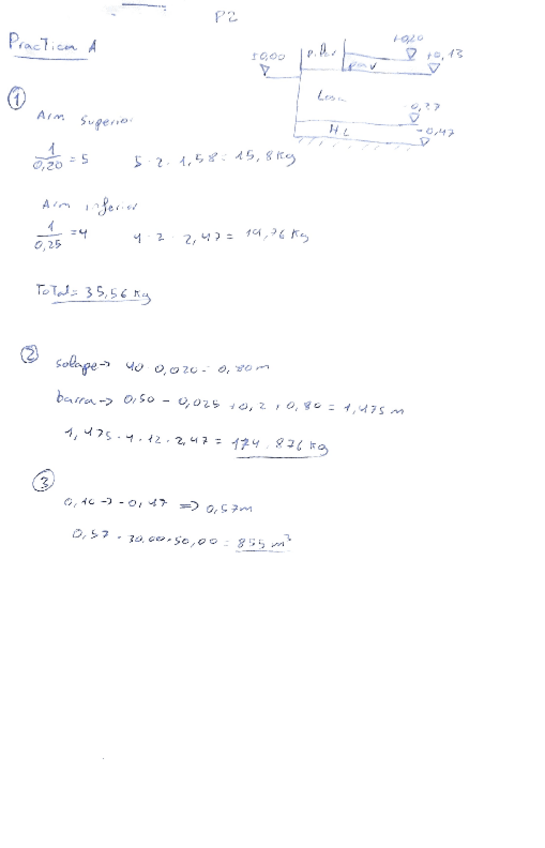 P2
Practica A
±0,00
pilar
+0,20
+0,13
pav
Losa
-0,27
HL
-0,47
1
Arm Superior
1/0,20 = 5 5 · 2 · 1,58 = 15,8 Kg
Arm inferior
1/0,25 = 4 4 · 2 · 2,47 = 19,76 Kg
Total = 35,56 Kg
2
solape → 40 · 0,020 = 0,80 m
barra → 0,50 - 0,025 + 0,2 + 0,80 = 1,475 m
1,475 · 4 · 12 · 2,47 = 174,876 kg
3
⇒ 0,57 m
0,57 · 30,00 · 50,00 = 855 m³